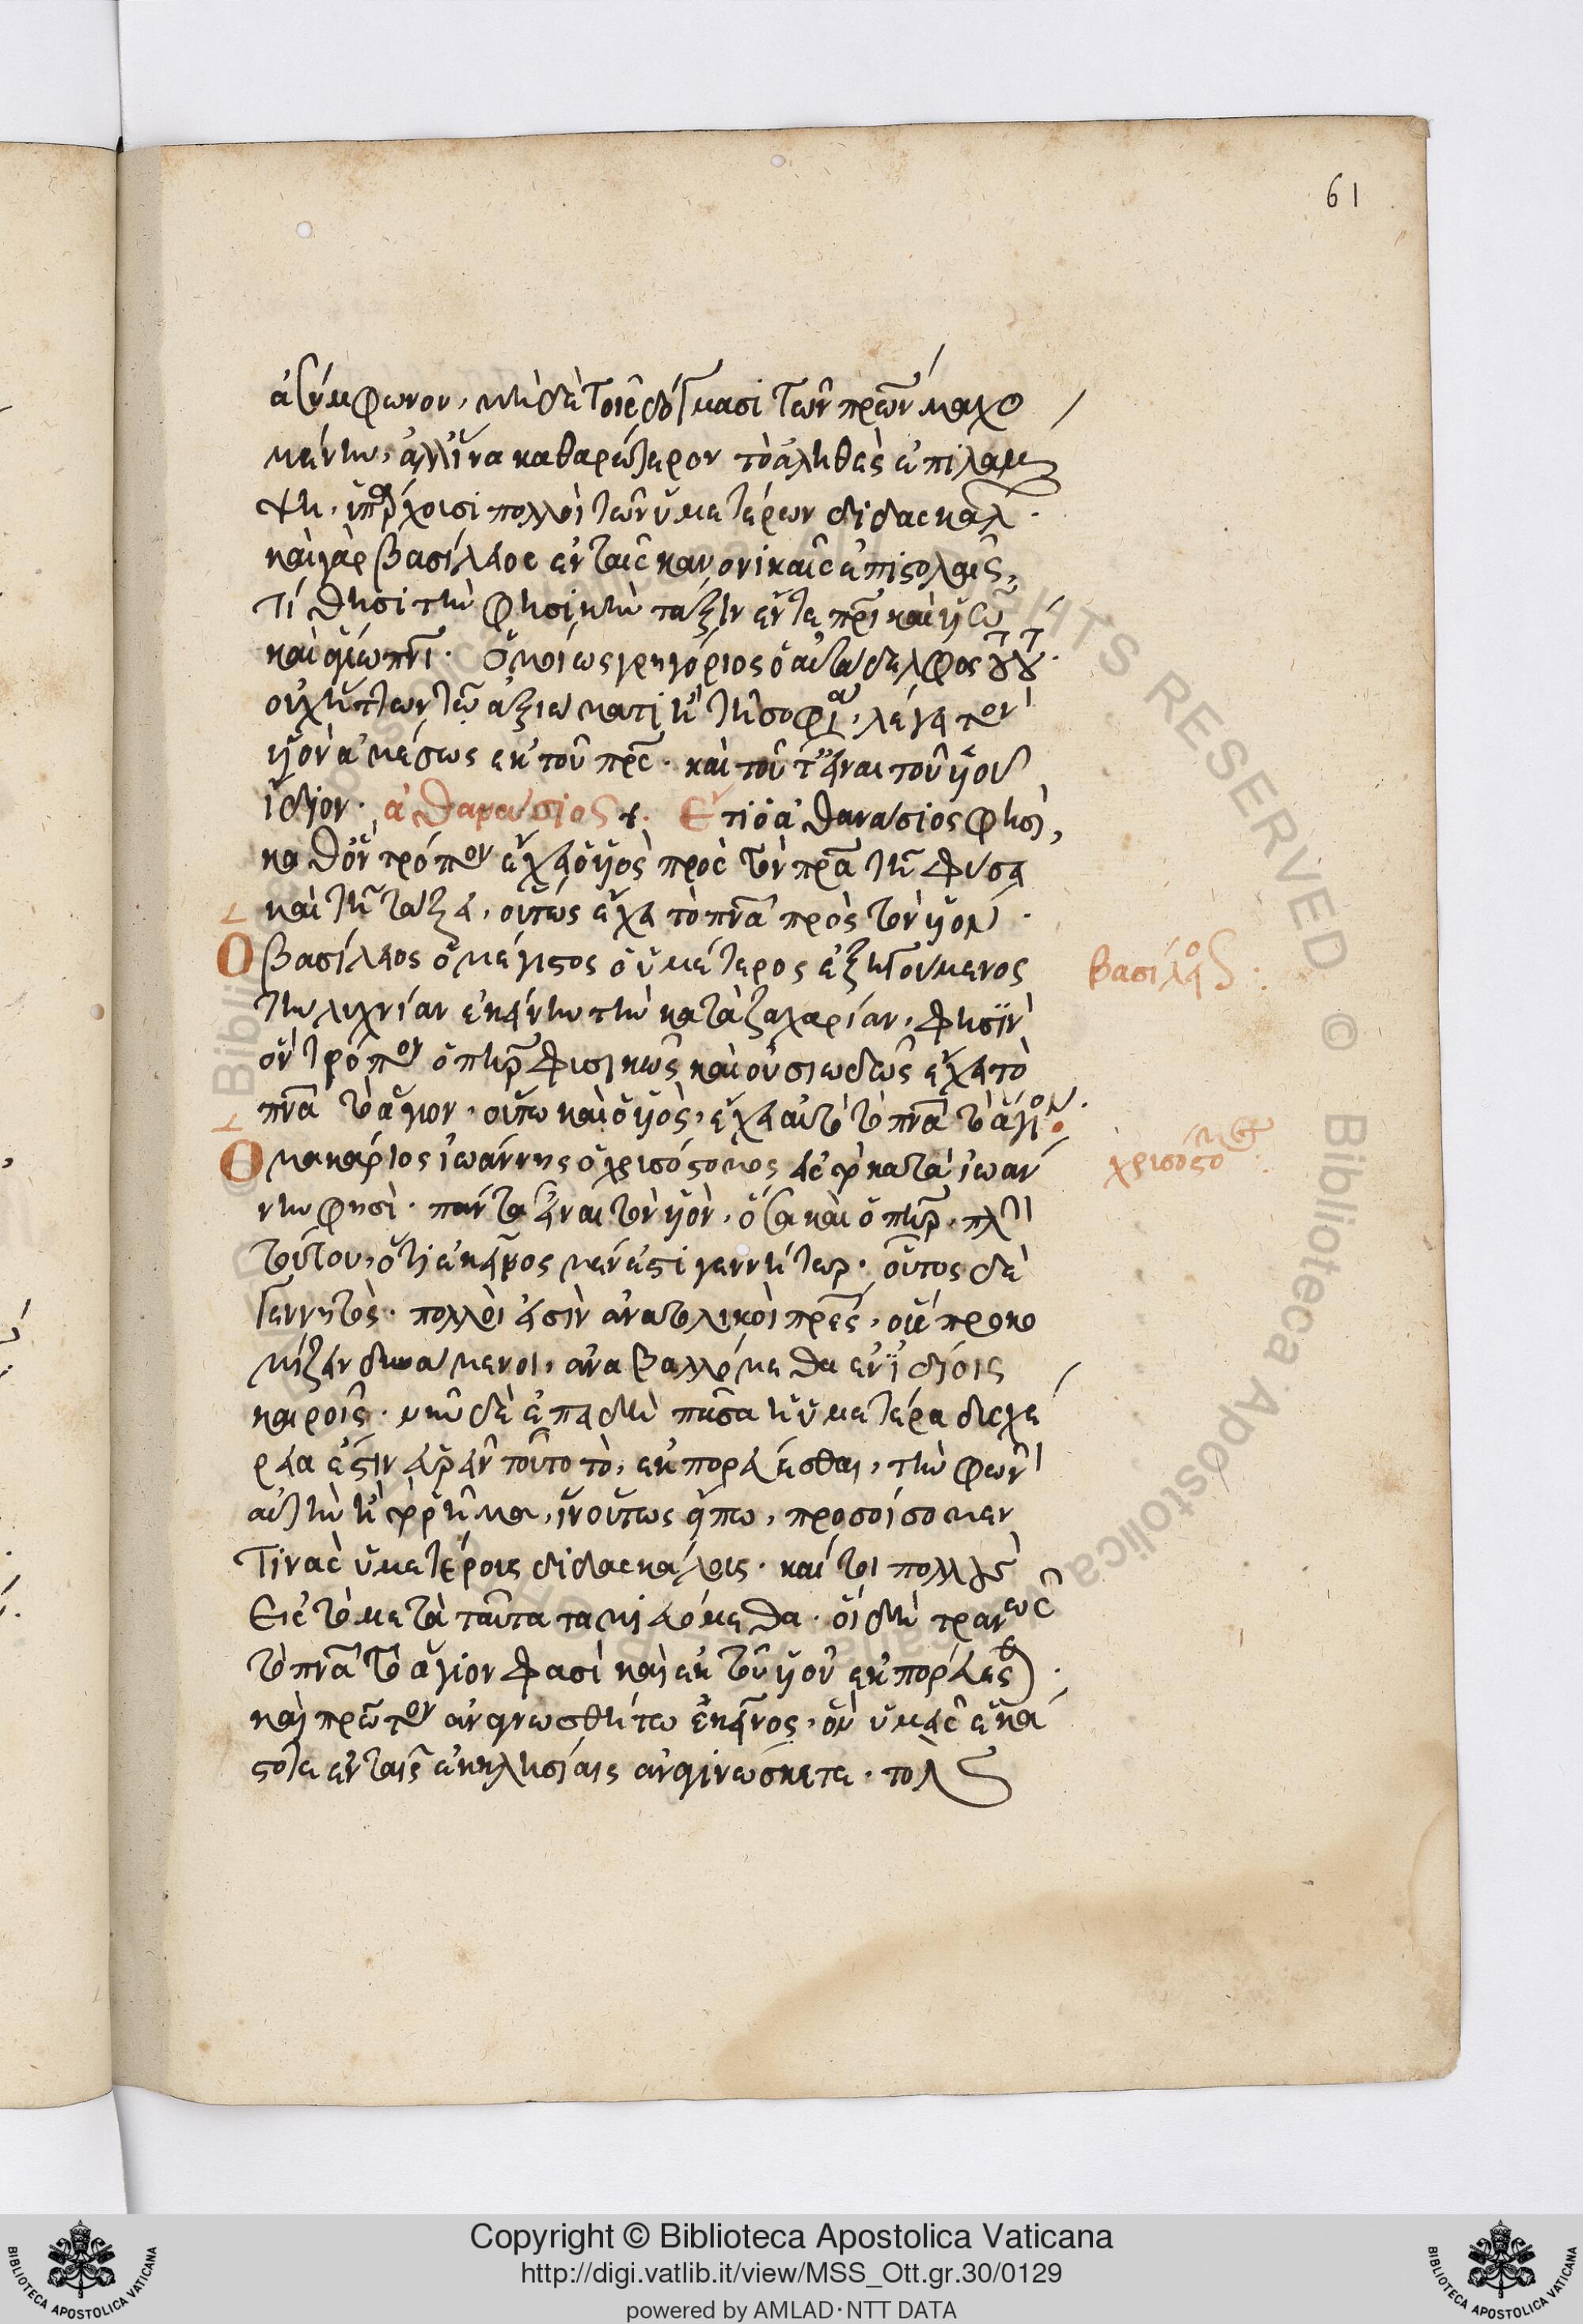 61
ἀσύμφωνον, μηδὲ τοῖς δόγμασι τῶν πρων μαχο
μένην, ἀλλ' ἵνα καθαρώτερον τὸ ἀληθὲς ἐπιλάμ
ψη, ὑπάρχουσι πολλοὶ τῶν ὑμετέρων διδασκαλ.
καὶ γὰρ βασίλειος ἐν ταῖς κανονικαῖς ἐπιστολαῖς,
τίθησι τὴν φησικὴν τάξιν ἔν τε πρι καὶ υἱῶ
καὶ ἁγίω πνι. ὁμοίως γρηγόριος ὁ αὐτάδελφος
οὐχ ἥττων τῶ ἀξιώματι ἢ τῆ σοφία, λέγει τὸν
υἱὸν ἀμέσως ἐκ τοῦ πρς. καὶ τοῦτ' εἶναι τοῦ υἱοῦ
ἴδιον. ἀθανάσιος. Ἔτι ὁ ἀθανάσιος φησὶ,
καθ' ὃν τρόπον ἔχει ὁ υἱὸς πρὸς τὸν πρα τῆ φύσει
καὶ τῆ τάξει, οὕτως ἔχει τὸ πνα πρὸς τὸν υἱόν.
Ὁ βασίλειος ὁ μέγιστος ὁ ὑμέτερος ἐξηγούμενος
βασίλειος
τὴν λυχνίαν ἐκείνην τὴν κατὰ ζαχαρίαν, φησὶν
ὃν τρόπον ὁ πηρ φισικῶς καὶ οὐσιωδῶς ἔχει τὸ
πνα τὸ ἅγιον, οὕτω καὶ ὁ υἱὸς, ἔχει αὐτὸ τὸ πνα τὸ ἅγιον.
Ὁ μακάριος ἰωάννης ὁ χρισόστομος εἰς τὸ κατὰ ἰωάν
χρισοστομ
νην φησὶ. πάντα εἶναι τὸν υἱὸν, ὅσα καὶ ὁ πηρ. πλὴν
τούτου, ὅτι ἐκεῖνος μέν ἐστι γεννήτωρ. οὗτος δὲ
γεννητὸς. πολλοὶ εἰσὶν ἀνατολικοὶ πρες, οὓς προκο
μίζειν δυνάμενοι, ἀναβαλλόμεθα ἐν ἰδίοις
καιροῖς. νῦν δὲ ἐπειδὴ πᾶσα ἡ ὑμετέρα δυσχέ
ρεια ἐστὶν εὑρεῖν τοῦτο τὸ, ἐκπορεύεσθαι, τὴν φωνὴν
αὐτὴν ἢ ῥῆμα, ἵν' οὕτως εἴπω, προσοίσομεν
τινὰς ὑμετέροις διδασκάλοις. καίτοι πολλοὺς
εἰς τὸ μετὰ ταῦτα ταμιευόμεθα. οἳ δὴ τρανῶς
τὸ πνα τὸ ἅγιον φασὶ καὶ ἐκ τοῦ υἱοῦ ἐκπορεύεσθαι.
καὶ πρῶτον ἀναγνωσθήτω ἐκεῖνος, ὃν ὑμεῖς ἑκά
στοτε ἐν ταῖς ἐκκλησίαις ἀναγινώσκετε. τολ
Copyright © Biblioteca Apostolica Vaticana
http://digi.vatlib.it/view/MSS_Ott.gr.30/0129
powered by AMLAD·NTT DATA
BIBLIOTECA APOSTOLICA VATICANA
BIBLIOTECA APOSTOLICA VATICANA